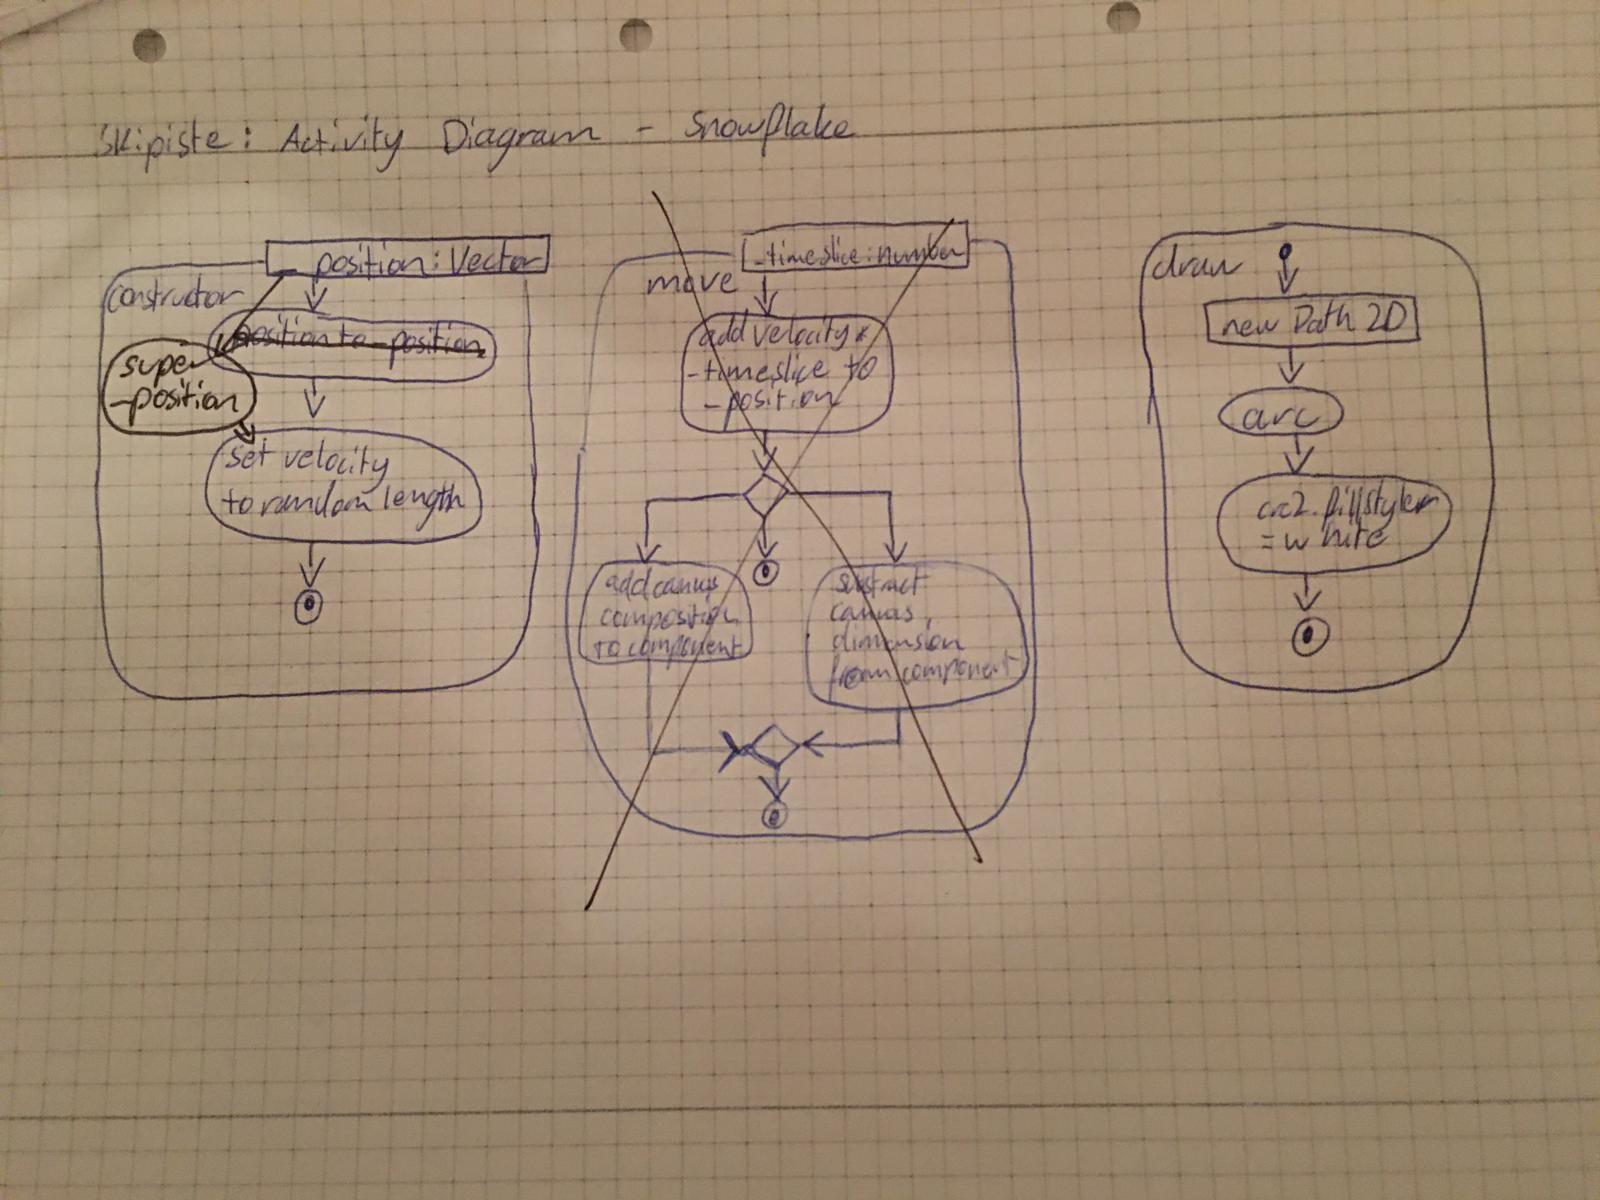 Skipiste: Activity Diagram - Snowflake
_position: Vector
constructor
position to _position
super
_position
set velocity
to random length
_timeslice: number
move
add velocity *
_timeslice to
_position
add canvas
composition
to component
substract
canvas
dimension
from component
draw
new Path 2D
arc
crc2.fillstyle
= white